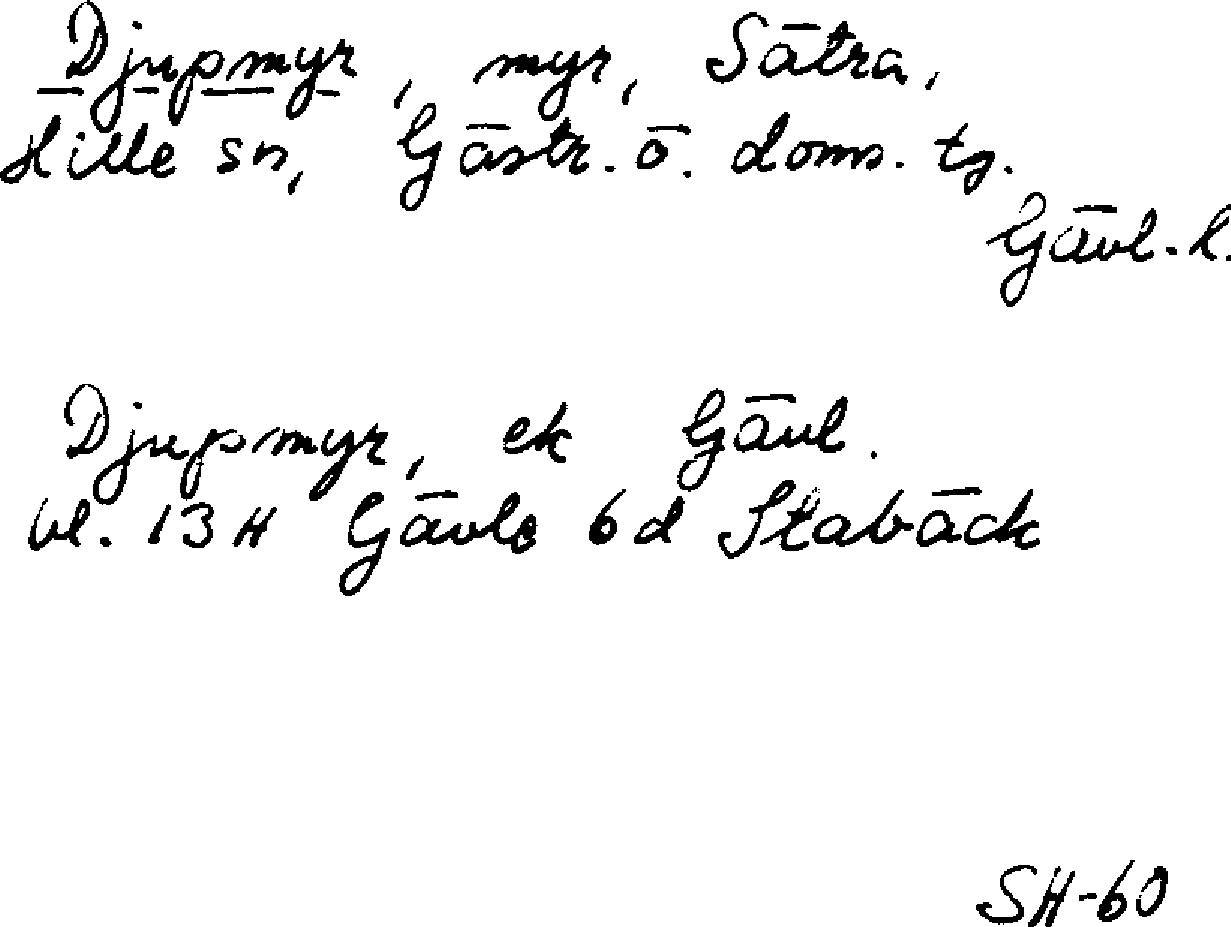 Djupmyr, myr, Sätra,
Hille sn, Gästr. ö. doms. tg.
Gävl. l.
Djupmyr, ek Gävl.
bl. 13H Gävle 6d Stabäck
SH-60